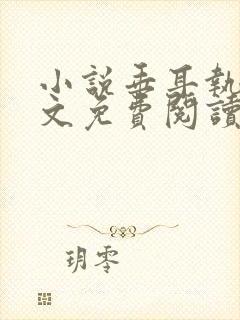 小說垂耳執
文免費閱讀
玥零